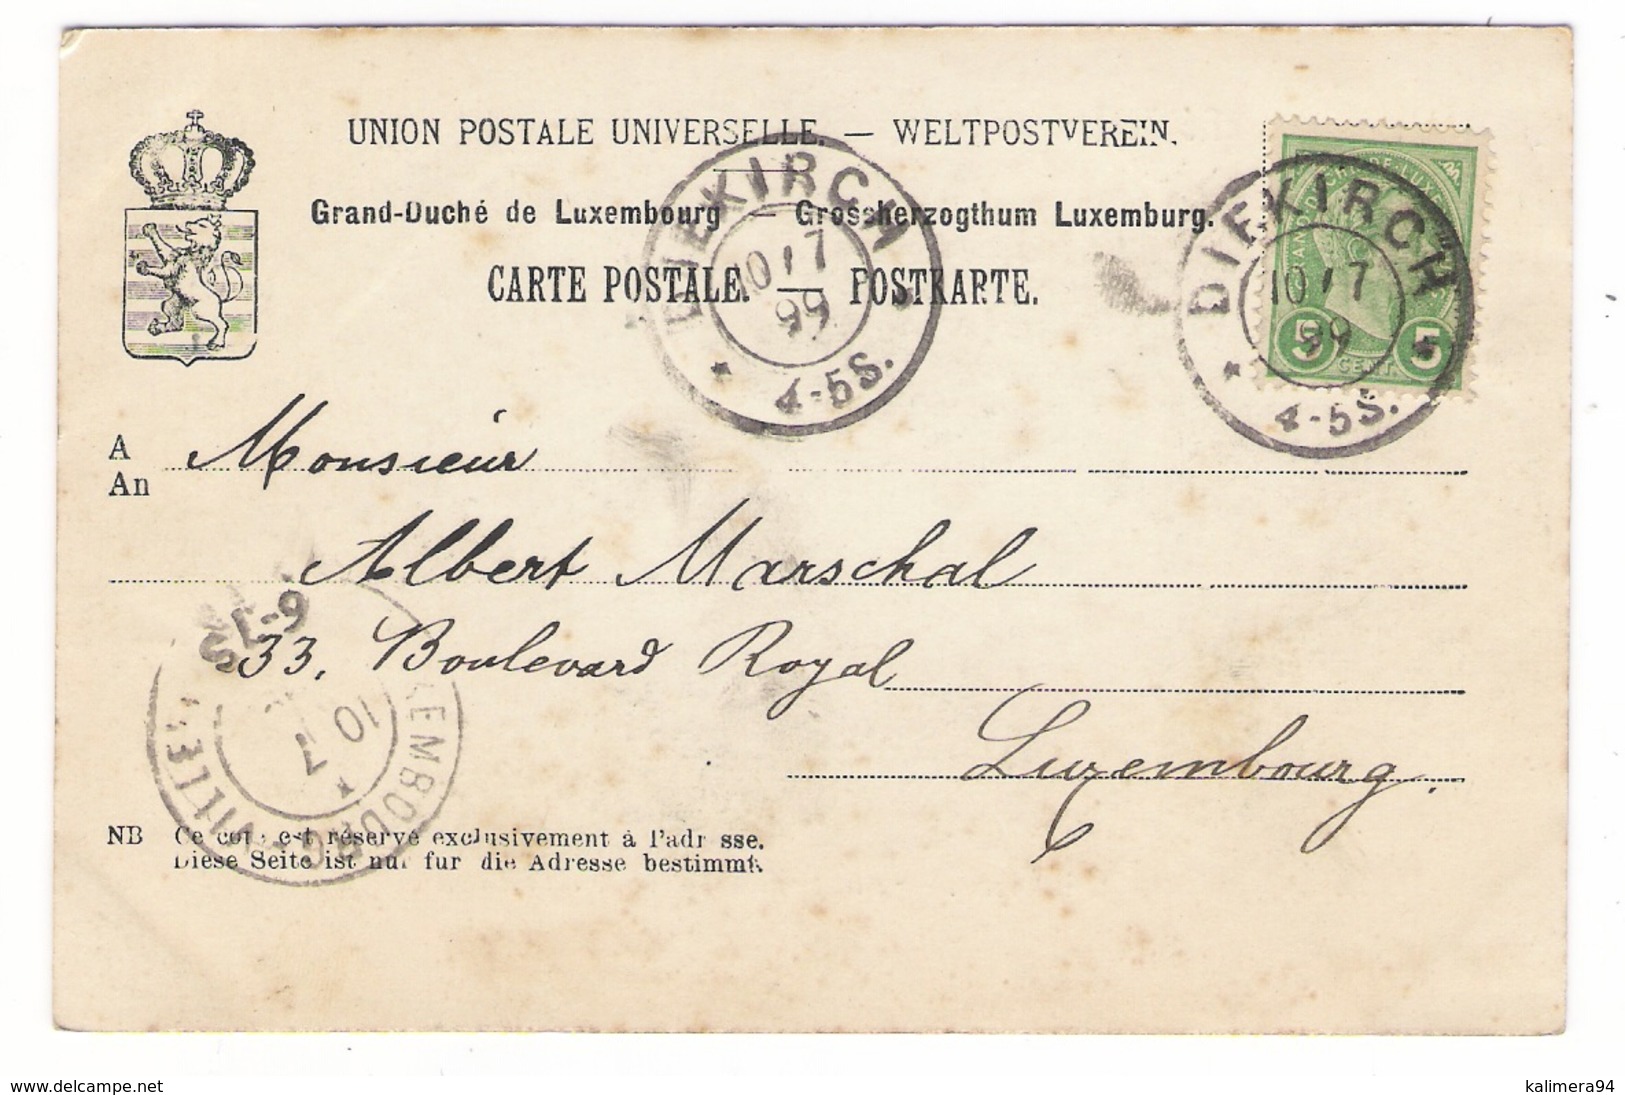 UNION POSTALE UNIVERSELLE. — WELTPOSTVEREIN.
Grand-Duché de Luxembourg — Grossherzogthum Luxemburg.
CARTE POSTALE. — POSTKARTE.
DIEKIRCH
10 / 7
99
4-5S.
DIEKIRCH
10 / 7
99
4-5S.
5 CENT. 5
A
An
Monsieur
Albert Marschal
33, Boulevard Royal
Luxembourg.
6-7S
10
7
LUXEMBOURG-VILLE
NB Ce coté est réservé exclusivement à l'adresse.
Diese Seite ist nur fur die Adresse bestimmt.
www.delcampe.net
kalimera94